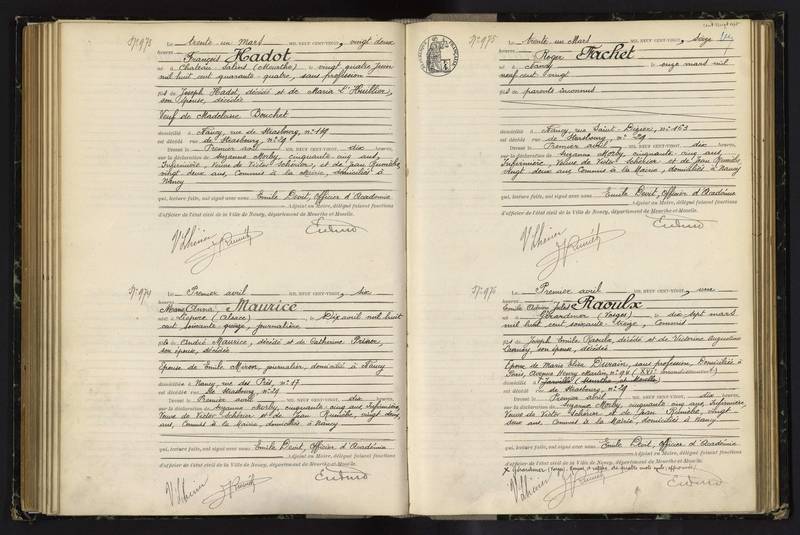 N° 973
Le trente un mars MIL NEUF CENT-VINGT, vingt deux
heures,
François Hadot
né à Château Salins (Meurthe) le vingt quatre Juin
mil huit cent quarante quatre, sans profession
fils de Joseph Hadot, décédé et de Maria L'Huillier,
son épouse, décédée
Veuf de Madeleine Bouchet
domicilié à Nancy, rue de Strasbourg, n° 119
est décédé rue de Strasbourg, n° 29
Dressé le Premier avril MIL NEUF CENT-VINGT, dix heures,
sur la déclaration de Suzanne Morby, cinquante cinq ans,
Infirmière, Veuve de Victor Lchérier, et de Jean Rumélhe,
vingt deux ans, Commis à la Mairie, domiciliés à
Nancy
qui, lecture faite, ont signé avec nous Emile Devit, Officier d'Académie
Adjoint au Maire, délégué faisant fonctions
d'officier de l'état civil de la Ville de Nancy, département de Meurthe-et-Moselle.
N° 974
Le Premier avril MIL NEUF CENT-VINGT, six
heures,
Marie Anna Maurice
née à Liepvre (Alsace) le Dix avril mil huit
cent soixante quinze, journalière
fille de André Maurice, décédé et de Catherine
son épouse, décédée
Epouse de Emile Miron, journalier, domicilié à Nancy
domiciliée à Nancy, rue des Prés, n° 17
est décédée rue de Strasbourg, n° 29
Dressé le Premier avril MIL NEUF CENT-VINGT, dix heures,
sur la déclaration de Suzanne Morby, cinquante cinq ans, Infirmière,
Veuve de Victor Lchérier et de Jean Rumélhe, vingt deux
ans, Commis à la Mairie, domiciliés à Nancy
qui, lecture faite, ont signé avec nous Emile Devit, Officier d'Académie
Adjoint au Maire, délégué faisant fonctions
d'officier de l'état civil de la Ville de Nancy, département de Meurthe-et-Moselle.
N° 975
Le trente un Mars MIL NEUF CENT-VINGT, seize
heures,
Roger Fachet
né à Nancy le onze mars mil
neuf cent vingt
fils de parents inconnus
domicilié à Nancy, rue Saint-Dizier, n° 163
est décédé rue de Strasbourg, n° 29
Dressé le Premier avril MIL NEUF CENT-VINGT, dix heures,
sur la déclaration de Suzanne Morby, cinquante cinq ans,
Infirmière, Veuve de Victor Lchérier et de Jean Rumélhe
vingt deux ans, Commis à la Mairie, domiciliés à Nancy
qui, lecture faite, ont signé avec nous Emile Devit, Officier d'Académie
Adjoint au Maire, délégué faisant fonctions
d'officier de l'état civil de la Ville de Nancy, département de Meurthe-et-Moselle.
N° 976
Le Premier avril MIL NEUF CENT-VINGT, une
heures,
Emile Jules Raoulx
né à Gérardmer (Vosges) le dix sept mars
mil huit cent soixante treize, Commis
fils de Joseph Emile Raoulx, décédé et de Victorine Augustine
son épouse, décédée
Epoux de Marie Elise Devrain, sans profession, Domiciliée à
Paris, Avenue Henry Martin, n° 94 (XVI° arrondissement)
domicilié à Joinville (Meurthe et Moselle)
est décédé rue de Strasbourg, n° 29
Dressé le Premier avril MIL NEUF CENT-VINGT, dix heures,
sur la déclaration de Suzanne Morby, cinquante cinq ans, Infirmière,
Veuve de Victor Lchérier et de Jean Rumélhe, vingt
deux ans, Commis à la Mairie, domiciliés à Nancy
qui, lecture faite, ont signé avec nous Emile Devit, Officier d'Académie
Adjoint au Maire, délégué faisant fonctions
d'officier de l'état civil de la Ville de Nancy, département de Meurthe-et-Moselle.